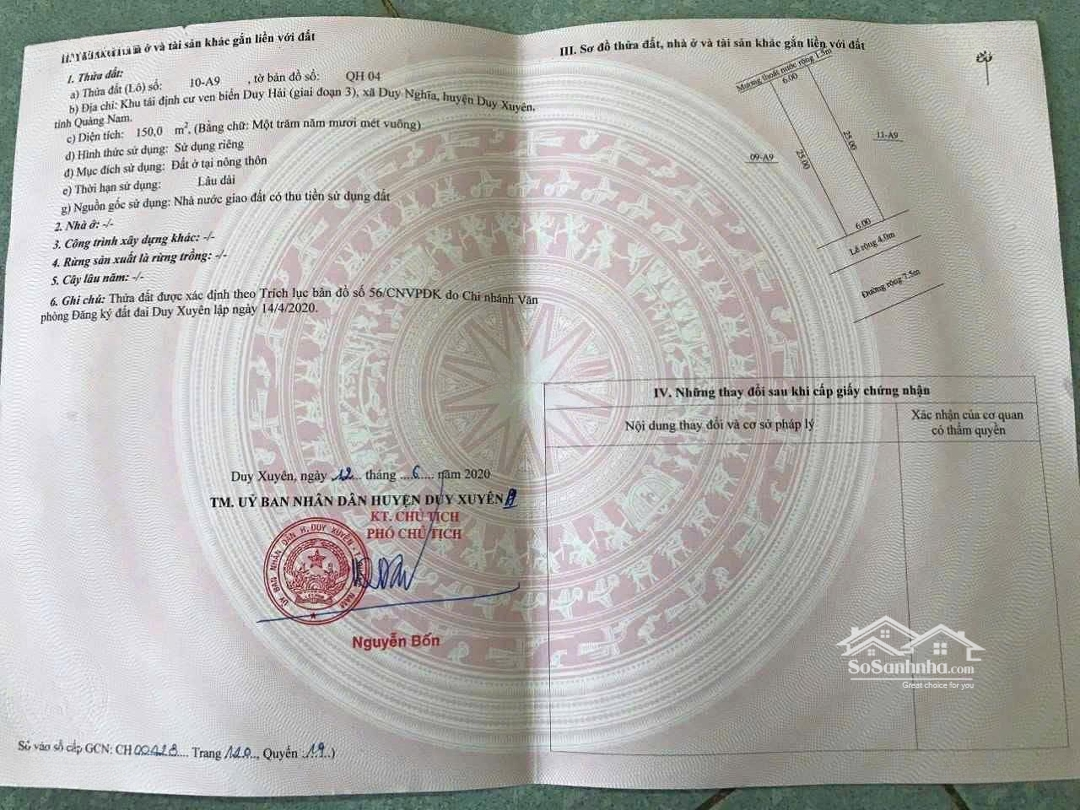 ở và tài sản khác gắn liền với đất
1. Thửa đất:
a) Thửa đất (Lô) số: 10-A9 , tờ bản đồ số: QH 04
b) Địa chỉ: Khu tái định cư ven biển Duy Hải (giai đoạn 3), xã Duy Nghĩa, huyện Duy Xuyên,
tỉnh Quảng Nam.
c) Diện tích: 150,0 m², (Bằng chữ: Một trăm năm mươi mét vuông)
d) Hình thức sử dụng: Sử dụng riêng
đ) Mục đích sử dụng: Đất ở tại nông thôn
e) Thời hạn sử dụng: Lâu dài
g) Nguồn gốc sử dụng: Nhà nước giao đất có thu tiền sử dụng đất
2. Nhà ở: -/-
3. Công trình xây dựng khác: -/-
4. Rừng sản xuất là rừng trồng: -/-
5. Cây lâu năm: -/-
6. Ghi chú: Thửa đất được xác định theo Trích lục bản đồ số 56/CNVPĐK do Chi nhánh Văn
phòng Đăng ký đất đai Duy Xuyên lập ngày 14/4/2020.
Duy Xuyên, ngày 12 tháng 6 năm 2020
TM. UỶ BAN NHÂN DÂN HUYỆN DUY XUYÊN
KT. CHỦ TỊCH
PHÓ CHỦ TỊCH
ỦY BAN NHÂN DÂN H. DUY XUYÊN
NAM
Nguyễn Bốn
Số vào sổ cấp GCN: CH Trang 120, Quyển 19)
III. Sơ đồ thửa đất, nhà ở và tài sản khác gắn liền với đất
Mương thoát nước rộng 1.5m
6.00
25.00
25.00
09-A9
11-A9
6.00
Lề rộng 4.0m
Đường rộng 7.5m
IV. Những thay đổi sau khi cấp giấy chứng nhận
Nội dung thay đổi và cơ sở pháp lý
Xác nhận của cơ quan
có thẩm quyền
SoSanhnha.com
Great choice for you